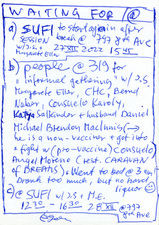 WAITING FOR @
a) @ SUFI to start again after
SESSION back @ 397 8th Ave
w/ J.S. 27 XII 2022 15
Margarete Eller
b) people @ 319 for
informal gathering w/ J.S.
Margarete Eller, CHC, Bernd
Naber, Consuelo Karoly,
Katja + husband Daniel
Michael Brendon MacInnis
he is a non-vaxxer + got into
a fight w/ (pro-vaccine) CONSUELO
Angel Moreno (hist. CARAVAN
of DREAMS). Went to bed @ 3 am
Drank too much, but no hard
liquor
c) @ SUFI w/ J.S. + M.E.
1230 - 1630 28 XII @ 397
8th Ave